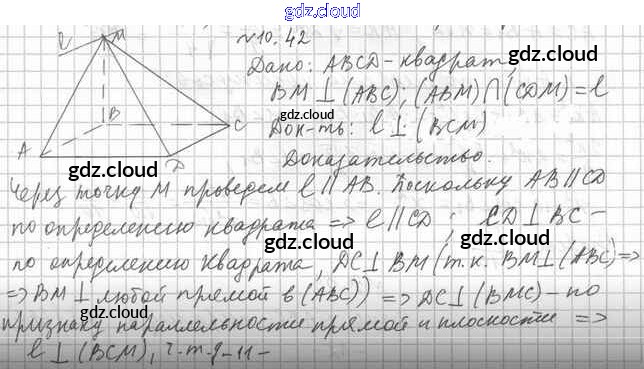 gdz.cloud
№10.42
Дано: ABCD - квадрат,
BM ⊥ (ABC); (ABM) ∩ (CDM) = l
gdz.cloud
Док-ть: l ⊥ (BCM)
Доказательство.
M
B
C
A
D
gdz.cloud
Через точку M проведем l || AB. Поскольку AB || CD
по определению квадрата => l || CD; CD ⊥ BC -
gdz.cloud
gdz.cloud
по определению квадрата, DC ⊥ BM (т.к. BM ⊥ (ABC) =>
=> BM ⊥ любой прямой в (ABC)) => DC ⊥ (BMC) - по
gdz.cloud
признаку параллельности прямой и плоскости =>
l ⊥ (BCM), ч.т.д.
gdz.cloud